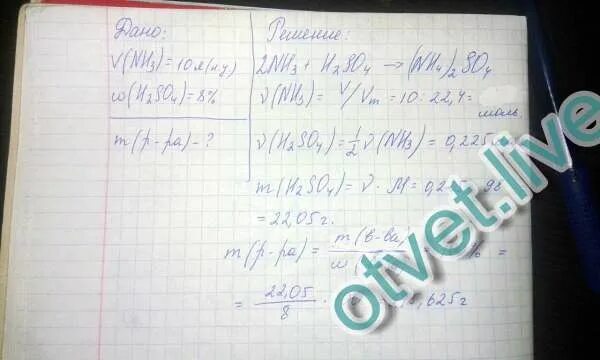 Дано:
V(NH₃) = 10 л (н.у)
ω(H₂SO₄) = 8%
m(р-ра) - ?
Решение:
2NH₃ + H₂SO₄ → (NH₄)₂SO₄
ν(NH₃) = V/Vm = 10 : 22,4 =
моль.
ν(H₂SO₄) = 1/2 ν(NH₃) = 0,225
m(H₂SO₄) = ν · M = 98
= 22,05 г.
m(р-ра) = m(в-ва)/ω % =
= 22,05/8 · ,625 г
otvet.live